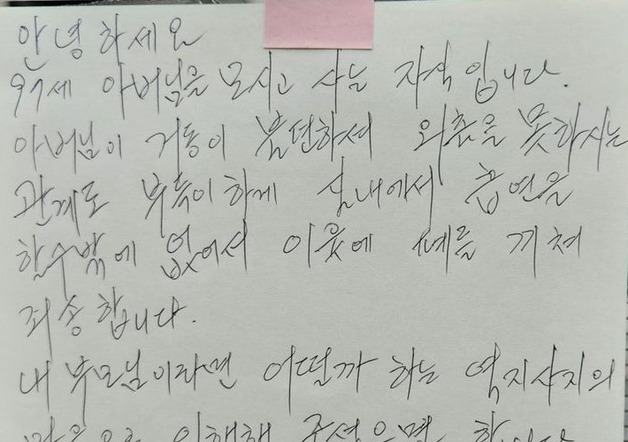 안녕하세요
97세 아버님을 모시고 사는 자식입니다.
아버님이 거동이 불편하셔 외출을 못하시는
관계로 부득이하게 실내에서 흡연을
할수밖에 없어서 이웃에 폐를 끼쳐
죄송합니다.
내 부모님이라면 어떨까 하는 역지사지의
마음으로 이해해 주셨으면 합니다